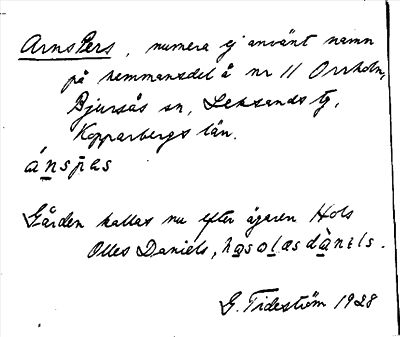 ArnsPers, numera ej använt namn
på hemmansdel å nr 11 Orrholn,
Bjursås sn, Leksands tg,
Kopparbergs län.
ánspæs
Gården kallas nu efter ägaren Hols
Olles Daniels, hosolæsdànɛls.
G. Tideström 1928